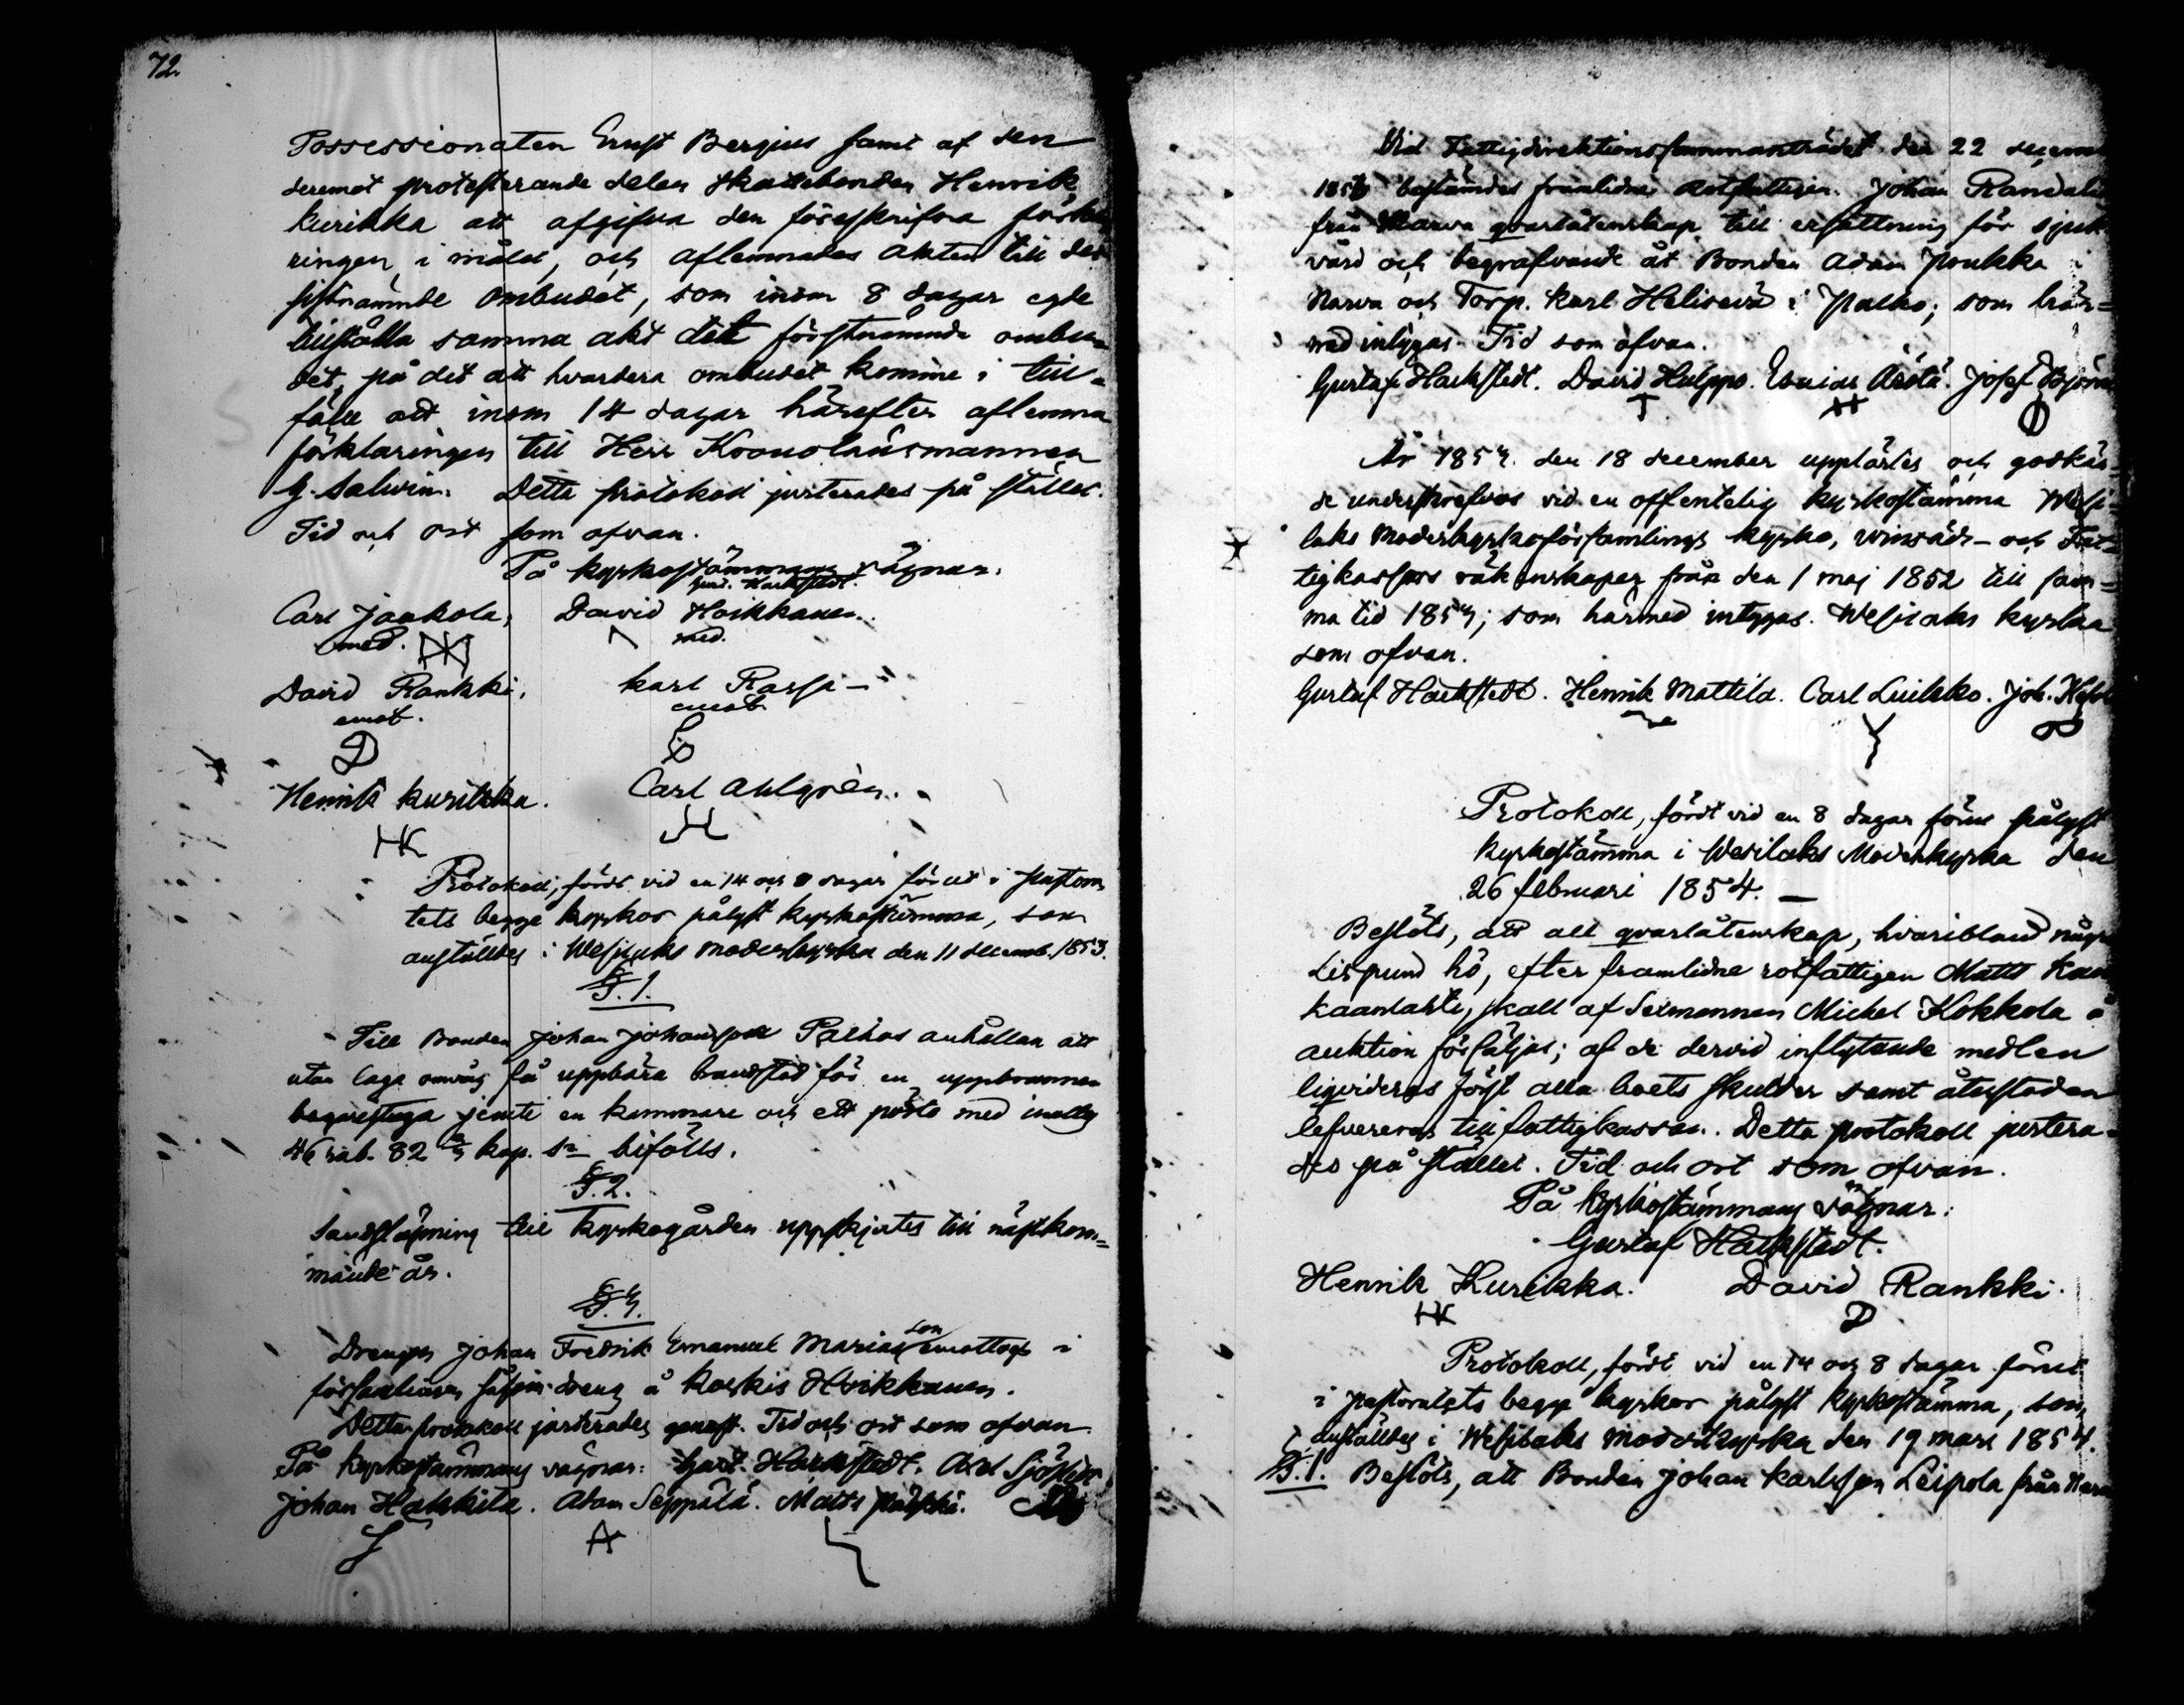 72.
Possessionaten Ernst Bergius samt af den
deremot protesterande delen Skattebonden Henrik
Kurikka att afgifva den föreskrifna förkla
ringen i målet, och aflemnades akten till det
sistnämnde ombudet, som inom 8 dagar egde
tillställa samma akt det förstnämnda ombu=
det, på det att hvardera ombudet komme i till=
fälle att inom 14 dagar härefter aflemna
förklaringen till Herr Kronolänsmannen
G. Salwin. Detta protokoll justerades på stället.
Tid och ort som ofvan.
På kyrkostämmans vägnar.
Gust. Hackstedt.
Carl Jaakola, David Hoikkanen.
med. med.
David Rankki, Karl Rassa –
emot. emot.
D
Henrik Kurikka. Carl Ahlgrén.
HK
Protokoll, fördt vid en 14 och 8 dagar förut i pastora
tets begge kyrkor pålyst kyrkostämma, som
anställdes i Wesilaks moderkyrka den 11 decemb. 1853.
§. 1.
Till Bonden Johan Johansson Palhos anhållan att
utan laga omväg få uppbära brandstod för en uppbrunnen
jemte en kammare och ett pörte med inalles
46 rub. 82 kop. sr bifölls.
§. 2.
till kyrkogården uppskjutes till nästkom=
mande år.
§. 3.
Drengen Johan Fredrik Emanuel Mariasson emottogs i
församlingen såsom dreng å Hoikkanen.
Detta protokoll justerades genast. Tid och ort som ofvan.
På kyrkostämmans vägnar: Gust. Hackstedt. Axel Sjöstedt
Johan Hakkila. Adam Seppälä. Matts
A
Vid Fattigdirektionssammanträdet den 22 decem
bestämdes framlidne Rotfattigen Johan Randala
från Narva qvarlåtenskap till ersättning för sjuk
vård och begrafvande åt Bonden Adam Junkka i
Narva och Torp. Karl Heliseva i Palho; som här=
med intygas. Tid som ofvan.
Gustaf Hackstedt. David Hulppo. Esaias Josef Björn
År 1853. den 18 december upplästes och godkän
de underskrefvos vid en offentelig kyrkostämma Wesi=
laks Moderkyrkoförsamlings kyrko, vinsäds– och Fat=
tigkassors räkenskaper från den 1 maj 1852 till sam=
ma tid 1853; som härmed intygas. Wesilaks kyrka
som ofvan.
Gustaf Hackstedt. Henrik Mattila. Carl Luikko. Joh.
Protokoll, fördt vid en 8 dagar förut pålyst
kyrkostämma i Wesilaks Moderkyrka den
26 februari 1854. —
Beslöts, att all qvarlåtenskap, hvaribland någr
Lispund hö, efter framlidne rotfattigen Matts Kan
kaanlahti, skall af Sexmannen Michel Kokkola å
auktion försäljas; af de dervid inflytande medlen
liqvideras först alla boets skulder samt återstoden
lefvereras till fattigkassan. Detta protokoll justera=
des på stället. Tid och ort som ofvan.
På kyrkostämmans vägnar:
Gustaf Hackstedt.
Henrik Kurikka. David Rankki.
HK D
Protokoll, fördt vid en 14 och 8 dagar förut
i pastoratets begge kyrkor pålyst kyrkostämma, som
anställdes i Wesilaks moderkyrka den 19 mars 1854.
§. 1. Beslöts, att Bonden Johan Karlsson Leipola från Narva